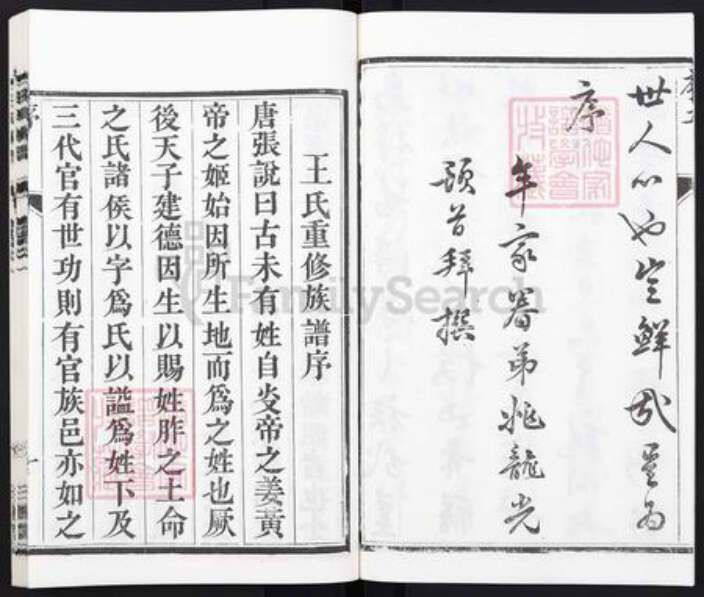 世人心也豈鮮哉是為
序
年家眷弟兆龍光
頓首拜撰
王氏重修族譜序
唐張說曰古未有姓自炎帝之姜黃
帝之姬始因所生地而爲之姓也厥
後天子建德因生以賜姓胙之土命
之氏諸侯以字爲氏以謚爲姓下及
三代官有世功則有官族邑亦如之
FamilySearch